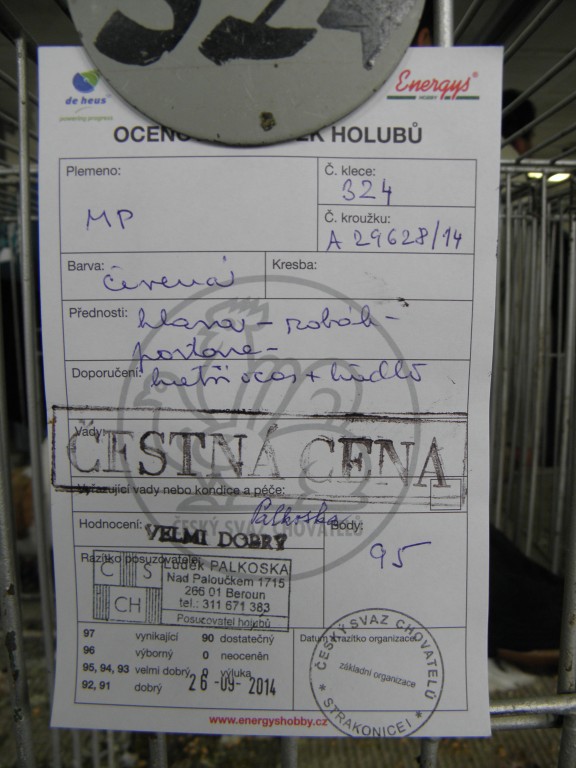 324
de heus
powering progress
Energys®
HOBBY
HOLUBŮ
Plemeno:
MP
Č. klece:
324
Č. kroužku:
A 29628/14
Barva: červená
Kresba:
Přednosti: hlava - zobák -
postava -
Doporučení: křídlo
Vady:
ČESTNÁ CENA
Vyřazující vady nebo kondice a péče:
Palkoska
ČESKÝ SVAZ CHOVATELŮ
Hodnocení: VELMI DOBRÝ
Body:
95
Razítko posuzovatele:
ČS
CH
Luděk PALKOSKA
Nad Paloučkem 1715
266 01 Beroun
tel.: 311 671 383
Posuzovatel holubů
97 vynikající 90 dostatečný
96 výborný 0 neoceněn
95, 94, 93 velmi dobrý 0 výluka
92, 91 dobrý
26 -09- 2014
Datum a razítko organizace:
ČESKÝ SVAZ CHOVATELŮ
základní organizace
* STRAKONICE I *
www.energyshobby.cz